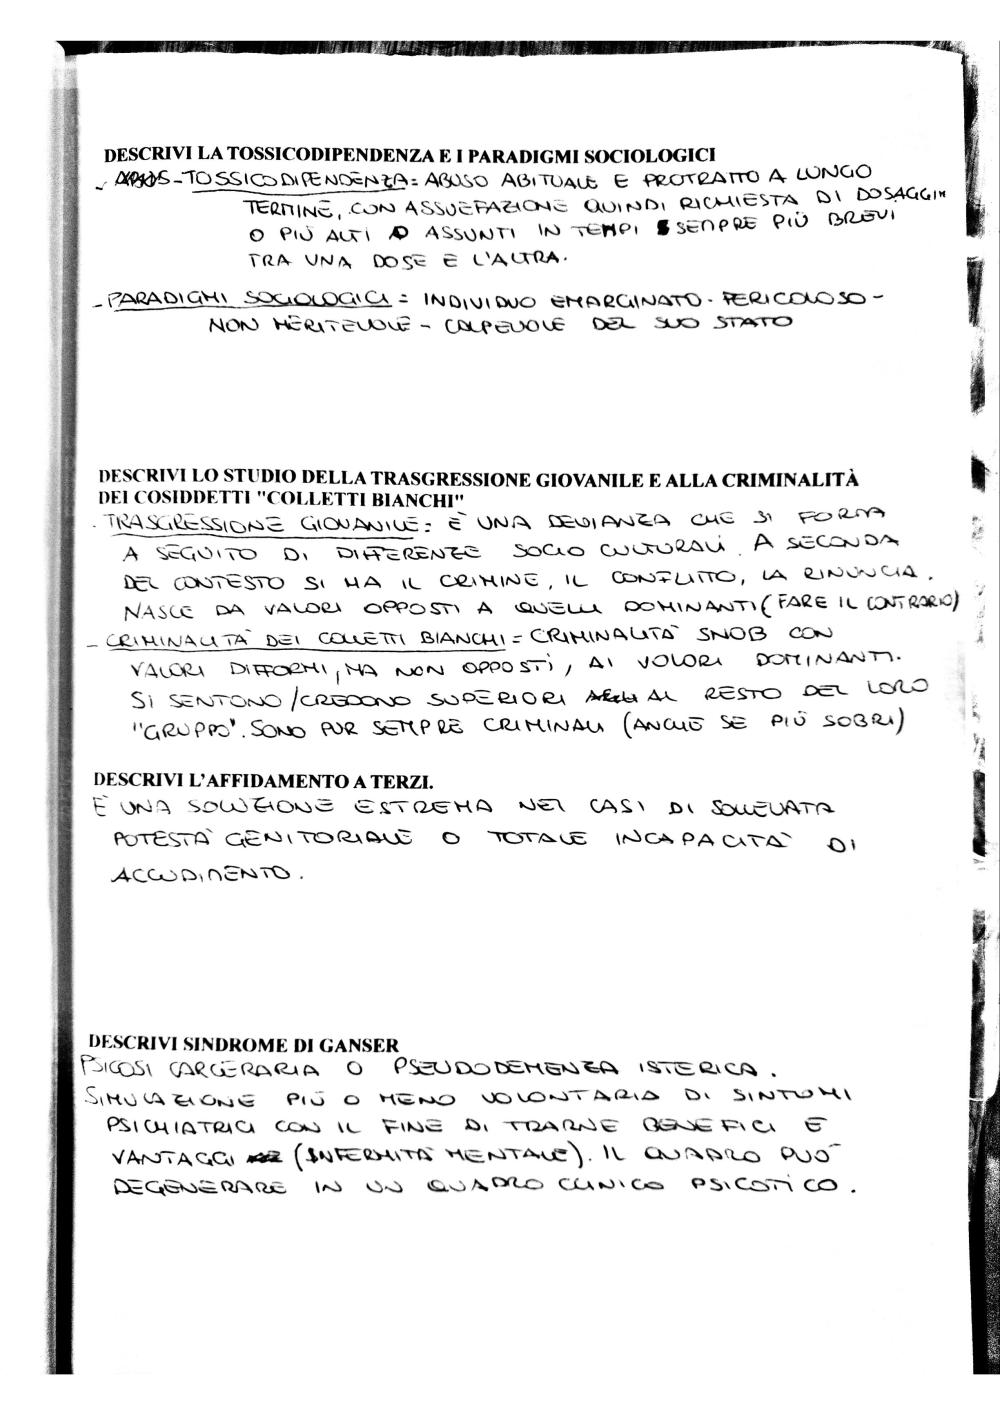 DESCRIVI LA TOSSICODIPENDENZA E I PARADIGMI SOCIOLOGICI
- TOSSICODIPENDENZA = ABUSO ABITUALE E PROTRATTO A LUNGO
TERMINE, CON ASSUEFAZIONE QUINDI RICHIESTA DI DOSAGGI
O PIÙ ALTI O ASSUNTI IN TEMPI SEMPRE PIÙ BREVI
TRA UNA DOSE E L'ALTRA.
- PARADIGMI SOCIOLOGICI = INDIVIDUO EMARGINATO - PERICOLOSO -
NON MERITEVOLE - COLPEVOLE DEL SUO STATO
DESCRIVI LO STUDIO DELLA TRASGRESSIONE GIOVANILE E ALLA CRIMINALITÀ
DEI COSIDDETTI "COLLETTI BIANCHI"
- TRASGRESSIONE GIOVANILE = È UNA DEVIANZA CHE SI FORMA
A SEGUITO DI DIFFERENZE SOCIO CULTURALI. A SECONDA
DEL CONTESTO SI HA IL CRIMINE, IL CONFLITTO, LA RINUNCIA.
NASCE DA VALORI OPPOSTI A QUELLI DOMINANTI (FARE IL CONTRARIO)
- CRIMINALITÀ DEI COLLETTI BIANCHI = CRIMINALITÀ SNOB CON
VALORI DIFFORMI, MA NON OPPOSTI, AI VOLORI DOMINANTI.
SI SENTONO/CREDONO SUPERIORI AL RESTO DEL LORO
"GRUPPO". SONO PUR SEMPRE CRIMINALI (ANCHE SE PIÙ SOBRI)
DESCRIVI L'AFFIDAMENTO A TERZI.
È UNA SOLUZIONE ESTREMA NEI CASI DI SOLLEVATA
POTESTÀ GENITORIALE O TOTALE INCAPACITÀ DI
ACCUDIMENTO.
DESCRIVI SINDROME DI GANSER
PSICOSI CARCERARIA O PSEUDODEMENZA ISTERICA.
SIMULAZIONE PIÙ O MENO VOLONTARIA DI SINTOMI
PSICHIATRICI CON IL FINE DI TRARNE BENEFICI E
VANTAGGI (INFERMITÀ MENTALE). IL QUADRO PUÒ
DEGENERARE IN UN QUADRO CLINICO PSICOTICO.